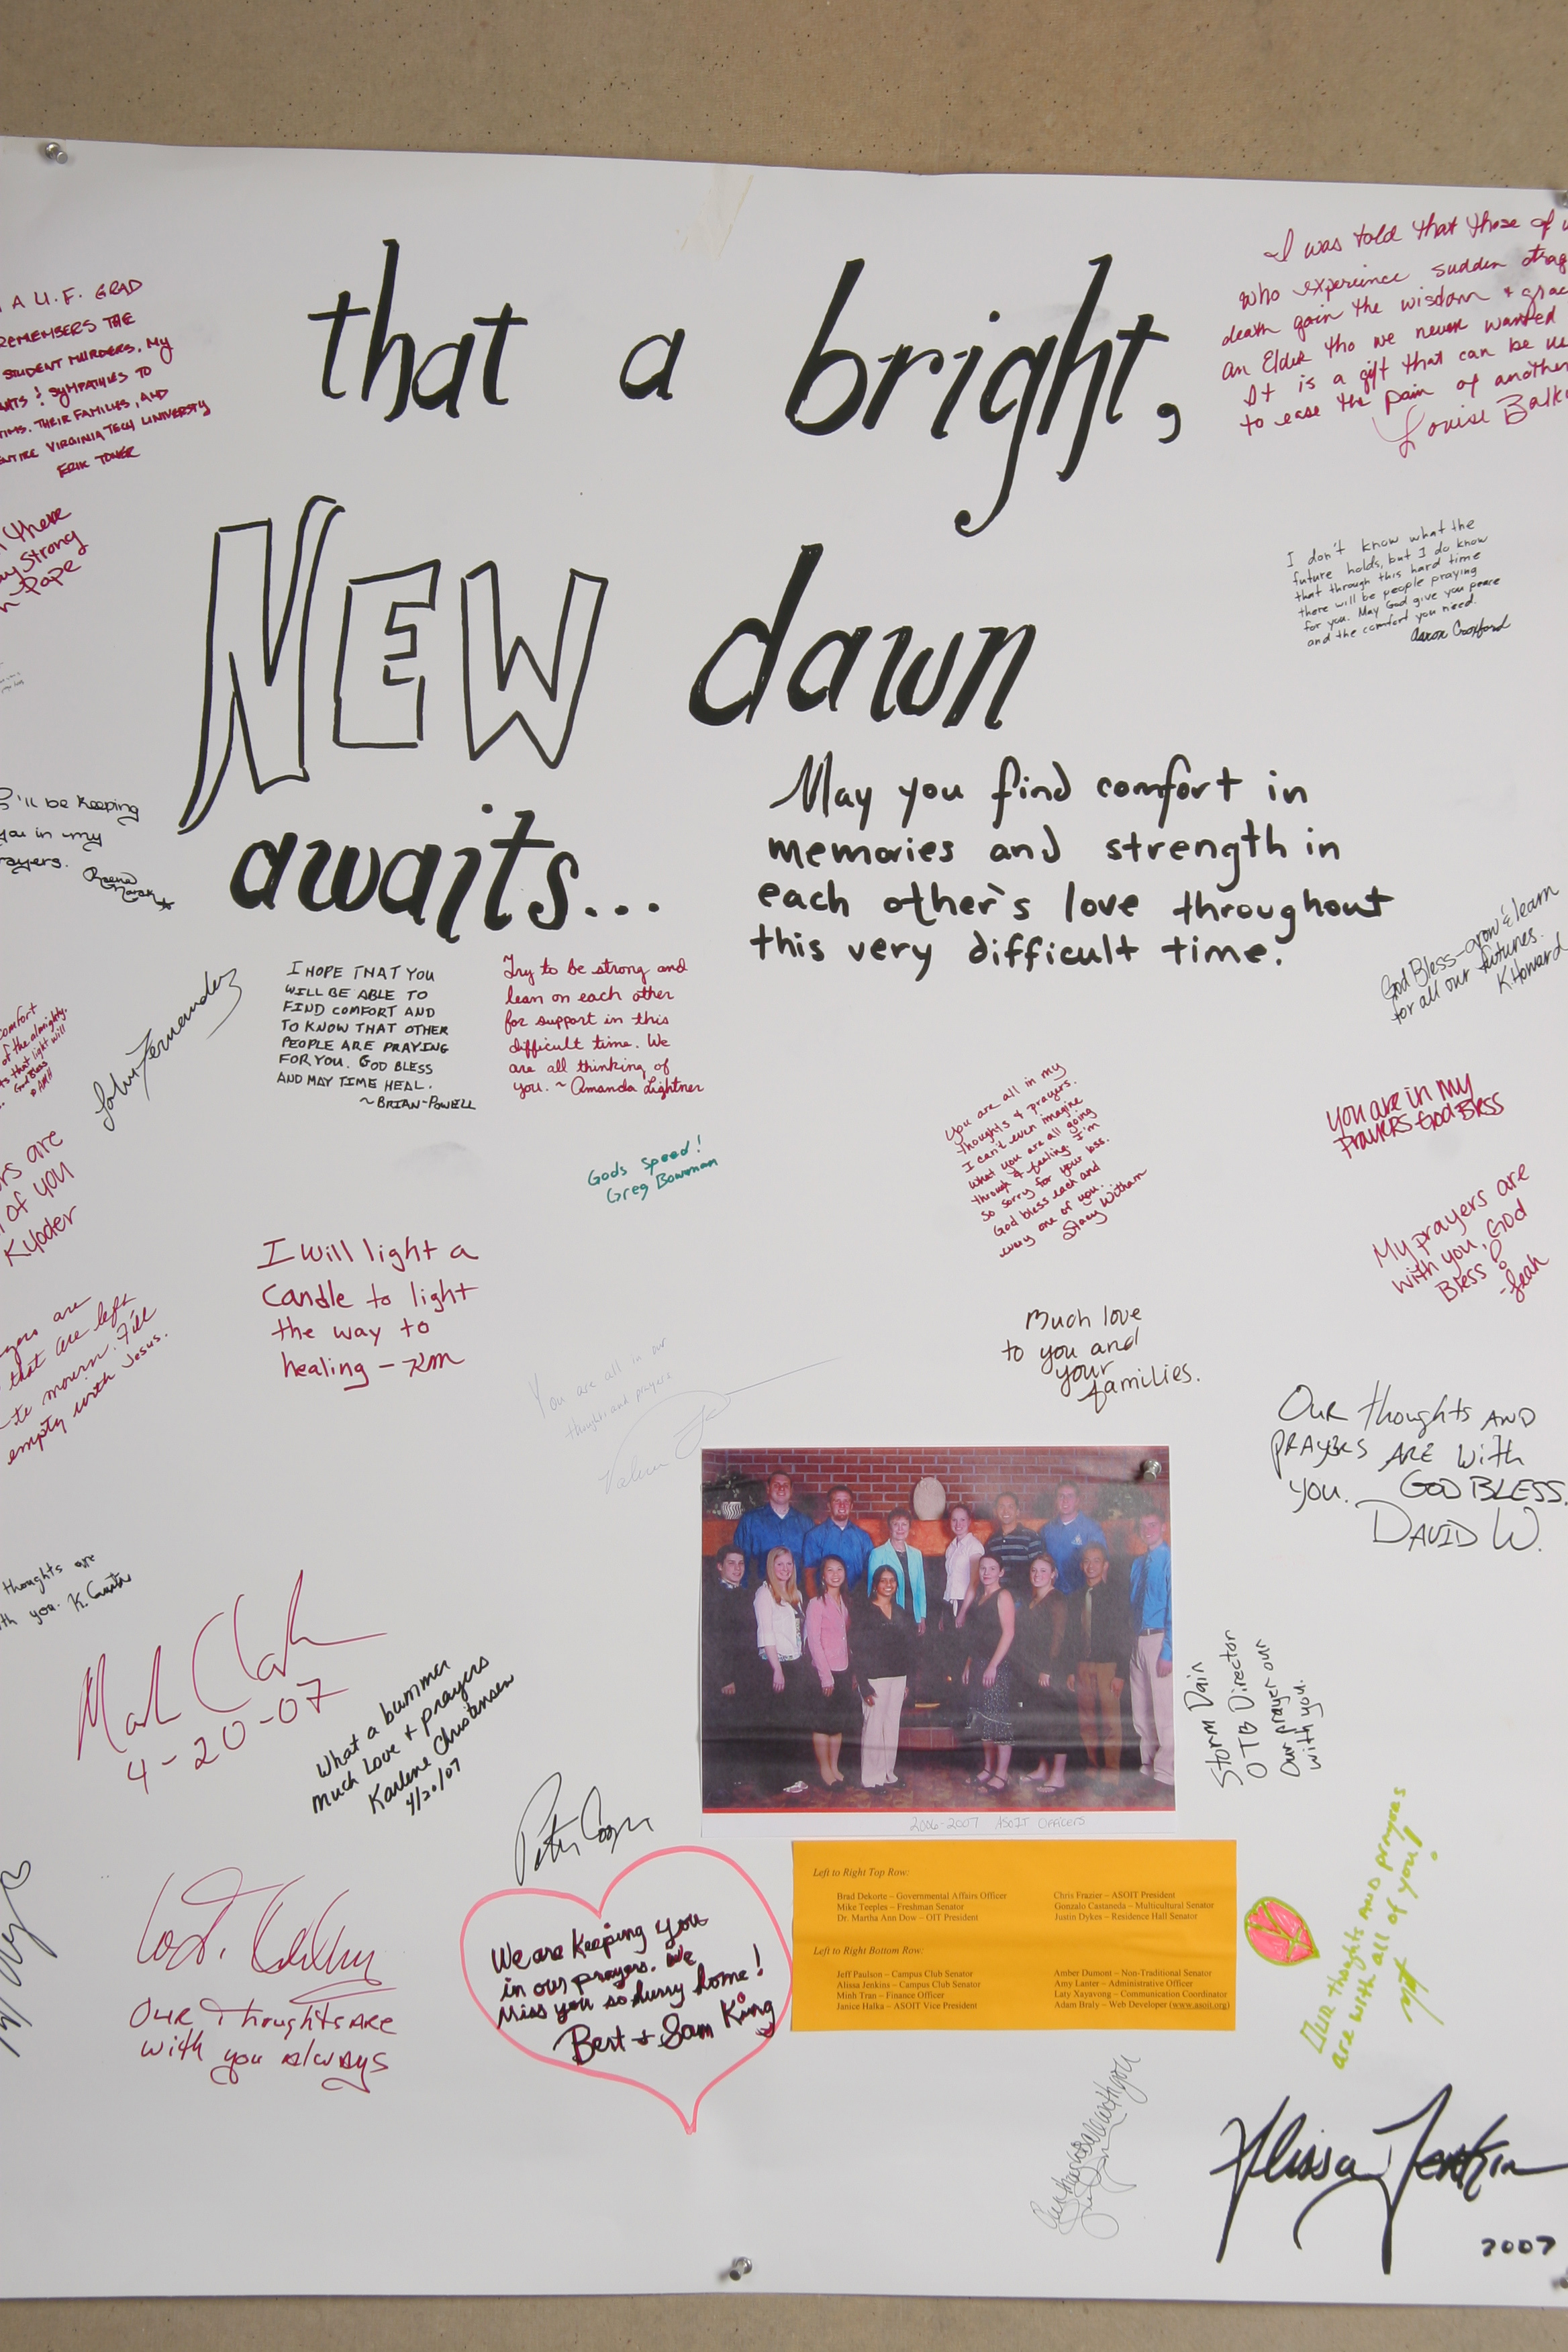 that a bright,
NEW dawn
awaits...
May you find comfort in
memories and strength in
each other's love throughout
this very difficult time.
A U.F. GRAD
REMEMBERS THE
STUDENT MURDERS. MY
& SYMPATHIES TO
THEIR FAMILIES, AND
ENTIRE VIRGINIA TECH UNIVERSITY
ERIK TOWER
I was told that those of
who experience sudden
death gain the wisdom + grac
an Elder tho we never wanted
It is a gift that can be
to ease the pain of another
Louise
there
Strong
Pope
I don't know what the
future holds, but I do know
that through this hard time
there will be people praying
for you. May God give you peace
and the comfort you need.
Aaron Croxford
I'll be keeping
you in my
prayers.
God Bless-grow & learn
for all our futures.
K. Howard
comfort
of the almighty.
that light will
God Bless
John Fernandez
I HOPE THAT YOU
WILL BE ABLE TO
FIND COMFORT AND
TO KNOW THAT OTHER
PEOPLE ARE PRAYING
FOR YOU. GOD BLESS
AND MAY TIME HEAL.
~BRIAN-POWELL
Try to be strong and
lean on each other
for support in this
difficult time. We
are all thinking of
you. ~ Amanda Lightner
Gods speed!
Greg Bowman
You are all in my
thoughts & prayers.
I can't even imagine
what you are all going
through & feeling. I'm
so sorry for your loss.
God bless each and
every one of you.
Stacy Witham
You are in my
prayers God Bless
My prayers are
with you, God
Bless!
-Leah
are
of you
Kyoder
are
that are left
to mourn. Fill
empty with Jesus.
I will light a
Candle to light
the way to
healing - KM
You are all in our
thoughts and prayers
Much love
to you and
your
families.
Our thoughts AND
PRAYERS ARE with
you. GOD BLESS.
DAVID W.
thoughts are
with you. K.
Mark Clark
4-20-07
What a bummer
much Love + prayers
Karlene Christensen
4/20/07
Storm Dain
OTB Director
Our prayer our
with you.
2006-2007 ASOIT OFFICERS
Left to Right Top Row:
Brad Dekorte – Governmental Affairs Officer
Mike Teeples – Freshman Senator
Dr. Martha Ann Dow – OIT President
Chris Frazier – ASOIT President
Gonzalo Castaneda – Multicultural Senator
Justin Dykes – Residence Hall Senator
Left to Right Bottom Row:
Jeff Paulson – Campus Club Senator
Alissa Jenkins – Campus Club Senator
Minh Tran – Finance Officer
Janice Halka – ASOIT Vice President
Amber Dumont – Non-Traditional Senator
Amy Lanter – Administrative Officer
Laty Xayavong – Communication Coordinator
Adam Braly – Web Developer (www.asoit.org)
Our thoughts AND prayers
are with all of you!
OUR ThoughtS ARE
with you Always
We are keeping you
in our prayers. We
Miss you so hurry home!
Bert + Sam King
Alissa Jenkins
2007